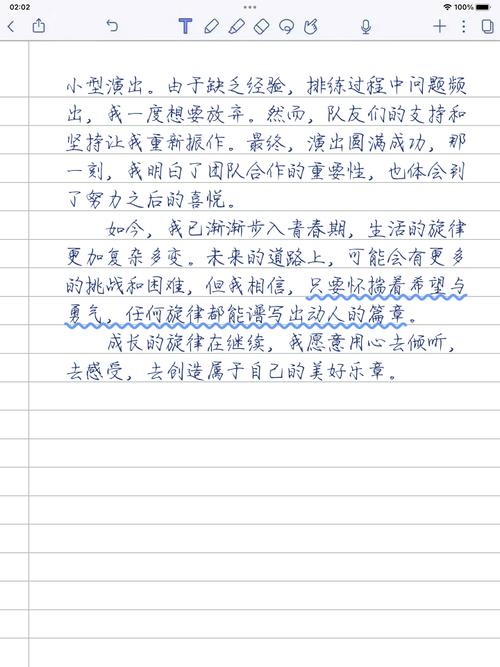 02:02
100%
小型演出。由于缺乏经验，排练过程中问题频
出，我一度想要放弃。然而，队友们的支持和
坚持让我重新振作。最终，演出圆满成功，那
一刻，我明白了团队合作的重要性，也体会到
了努力之后的喜悦。
如今，我已渐渐步入青春期，生活的旋律
更加复杂多变。未来的道路上，可能会有更多
的挑战和困难，但我相信，只要怀揣着希望与
勇气，任何旋律都能谱写出动人的篇章。
成长的旋律在继续，我愿意用心去倾听，
去感受，去创造属于自己的美好乐章。